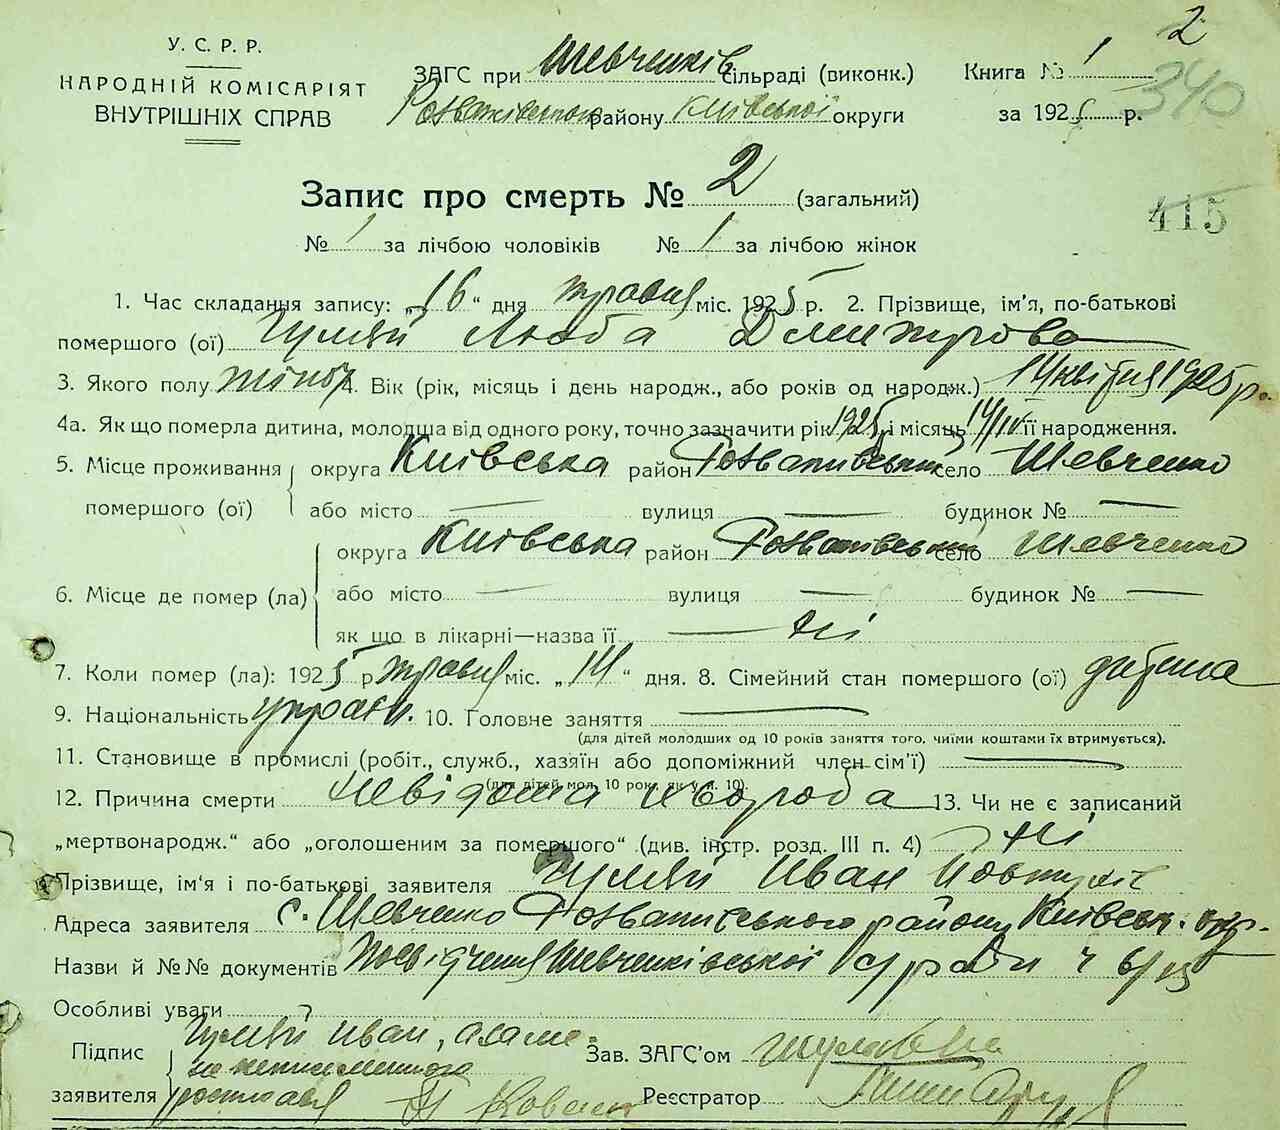 2
У. С. Р. Р.
НАРОДНІЙ КОМІСАРІЯТ
ВНУТРІШНІХ СПРАВ
ЗАГС при Шевченків сільраді (виконк.)
Розважівського району Київської округи
Книга № 1
за 1925 р.
340
415
Запис про смерть № 2 (загальний)
№ 1 за лічбою чоловіків № 1 за лічбою жінок
1. Час складання запису: „16“ дня травня міс. 1925 р. 2. Прізвище, ім'я, по-батькові
помершого (ої) Гуляй Люба Дмитрова
3. Якого полу жіноч 4. Вік (рік, місяць і день народж., або років од народж.) 14 квітня 1925 р.
4а. Як що померла дитина, молодша від одного року, точно зазначити рік 1925 і місяць 14/IV її народження.
5. Місце проживання помершого (ої) округа Київська район Розважівський село Шевченко
або місто — вулиця — будинок № —
6. Місце де помер (ла) округа Київська район Розважівський село Шевченко
або місто — вулиця — будинок № —
як що в лікарні—назва її — ні
7. Коли помер (ла): 1925 р травня міс. „14“ дня. 8. Сімейний стан помершого (ої) дитина
9. Національність україн. 10. Головне заняття —
(для дітей молодших од 10 років заняття того, чиїми коштами їх втримується).
11. Становище в промислі (робіт., служб., хазяїн або допоміжний член сім'ї) —
(для дітей мол. 10 рок. як у п. 10).
12. Причина смерти невідома хвороба 13. Чи не є записаний
„мертвонародж.“ або „оголошеним за помершого“ (див. інстр. розд. III п. 4) ні
Прізвище, ім'я і по-батькові заявителя Гуляй Иван
Адреса заявителя с. Шевченко Розважівського району Київськ. окр.
Назви й №№ документів Посвідчення Шевченківської с/ради ч 6/
Особливі уваги
Підпис заявителя Гуляй Иван, а за
неписьменного
росписався Коваль
Зав. ЗАГС'ом
Реєстратор